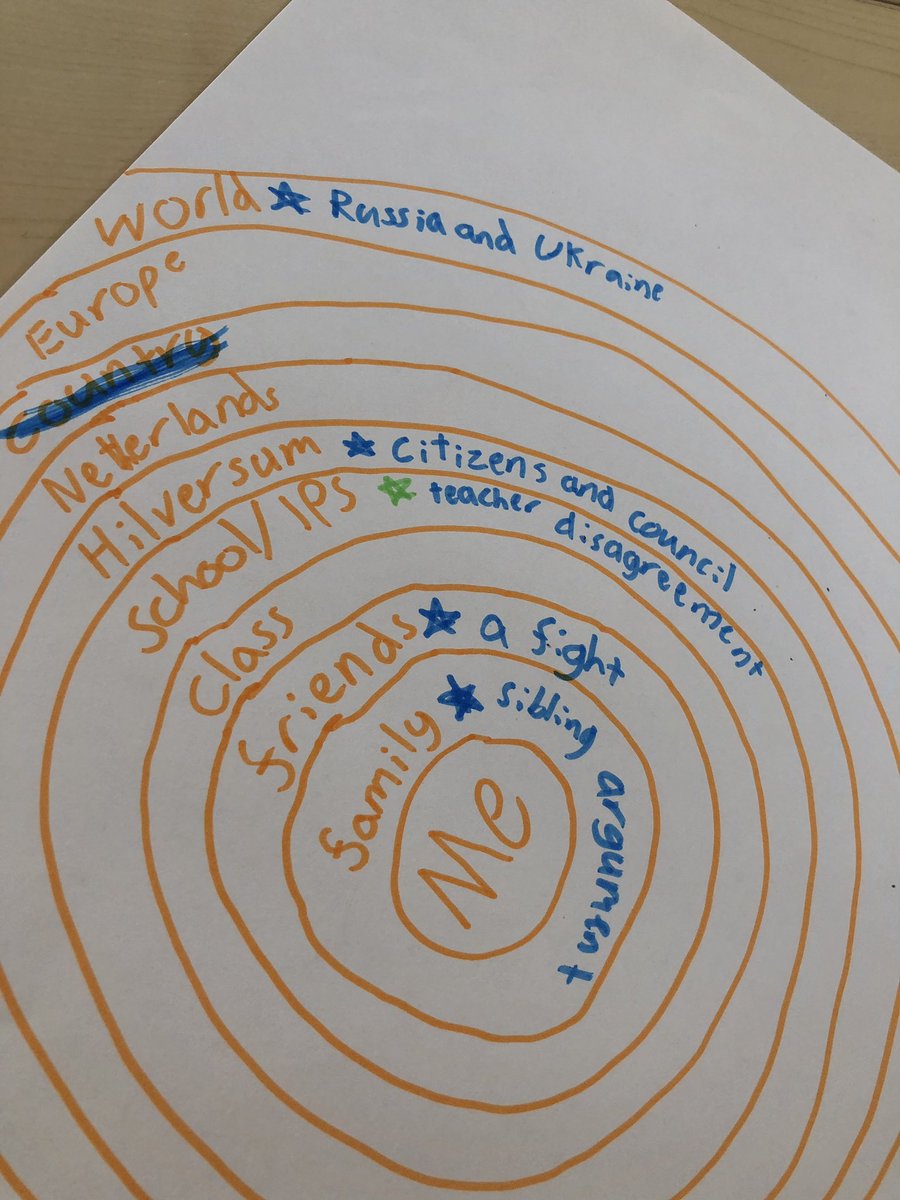 World ★ Russia and Ukraine
Europe
Country
Netherlands
Hilversum ★ Citizens and council
School/IPS ★ teacher disagreement
Class
friends ★ a fight
family ★ sibling argument
Me